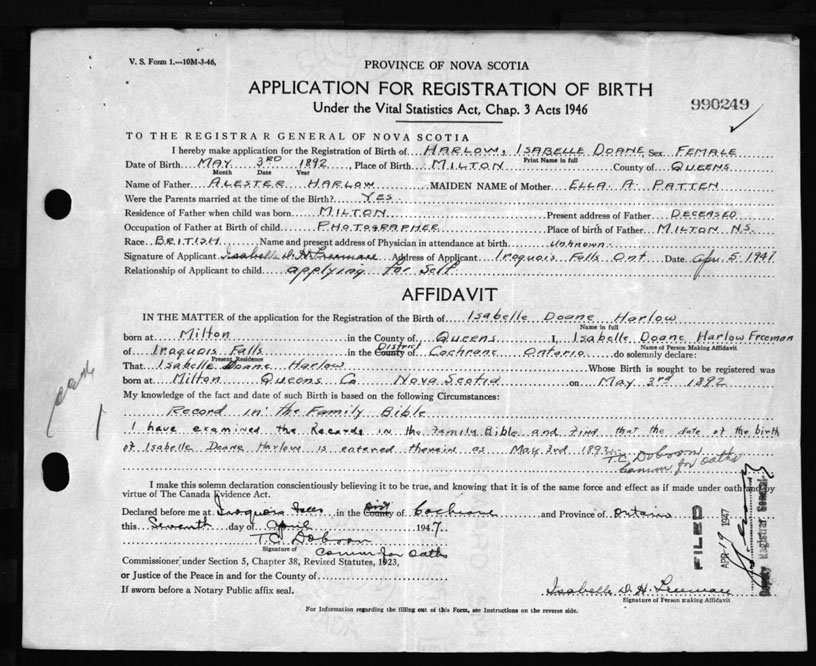 V. S. Form 1.—10M-3-46.
PROVINCE OF NOVA SCOTIA
APPLICATION FOR REGISTRATION OF BIRTH
Under the Vital Statistics Act, Chap. 3 Acts 1946
990249
TO THE REGISTRAR GENERAL OF NOVA SCOTIA
I hereby make application for the Registration of Birth of HARLOW, ISABELLE DOANE, Sex FEMALE
Print Name in full
Date of Birth MAY 3RD 1892, Place of Birth MILTON County of QUEENS
Month Date Year
Name of Father ALESTER HARLOW MAIDEN NAME of Mother ELLA A. PATTEN
Were the Parents married at the time of the Birth? YES.
Residence of Father when child was born MILTON Present address of Father DECEASED
Occupation of Father at Birth of child PHOTOGRAPHER Place of birth of Father MILTON N.S.
Race BRITISH Name and present address of Physician in attendance at birth Unknown.
Signature of Applicant Isabelle D. H. Freeman Address of Applicant Iroquois Falls Ont Date Apr. 5, 1947
Relationship of Applicant to child applying for Self
AFFIDAVIT
IN THE MATTER of the application for the Registration of the Birth of Isabelle Doane Harlow
Name in full
born at Milton in the County of Queens I, Isabelle Doane Harlow Freeman
Name of Person Making Affidavit
of Iroquois Falls in the County District of Cochrane Ontario do solemnly declare:
Present Residence
That Isabelle Doane Harlow Whose Birth is sought to be registered was
born at Milton Queens Co Nova Scotia on May 3rd 1892
My knowledge of the fact and date of such Birth is based on the following Circumstances:
Record in the Family Bible
I have examined the Records in the Family Bible and find that the date of the birth
of Isabelle Doane Harlow is entered therein as May 3rd 1892
T.C. Dobson
Comm. for Oaths
I make this solemn declaration conscientiously believing it to be true, and knowing that it is of the same force and effect as if made under oath and by
virtue of The Canada Evidence Act.
Declared before me at Iroquois Falls in the County Dist of Cochrane and Province of Ontario
this Seventh day of April 1947
T.C. Dobson
Signature of
Comm for Oaths
Commissioner under Section 5, Chapter 38, Revised Statutes, 1923,
or Justice of the Peace in and for the County of
If sworn before a Notary Public affix seal.
Isabelle D. H. Freeman
Signature of Person making Affidavit
For Information regarding the filling out of this Form, see Instructions on the reverse side.
FILED
APR 19 1947
Deputy Registrar General